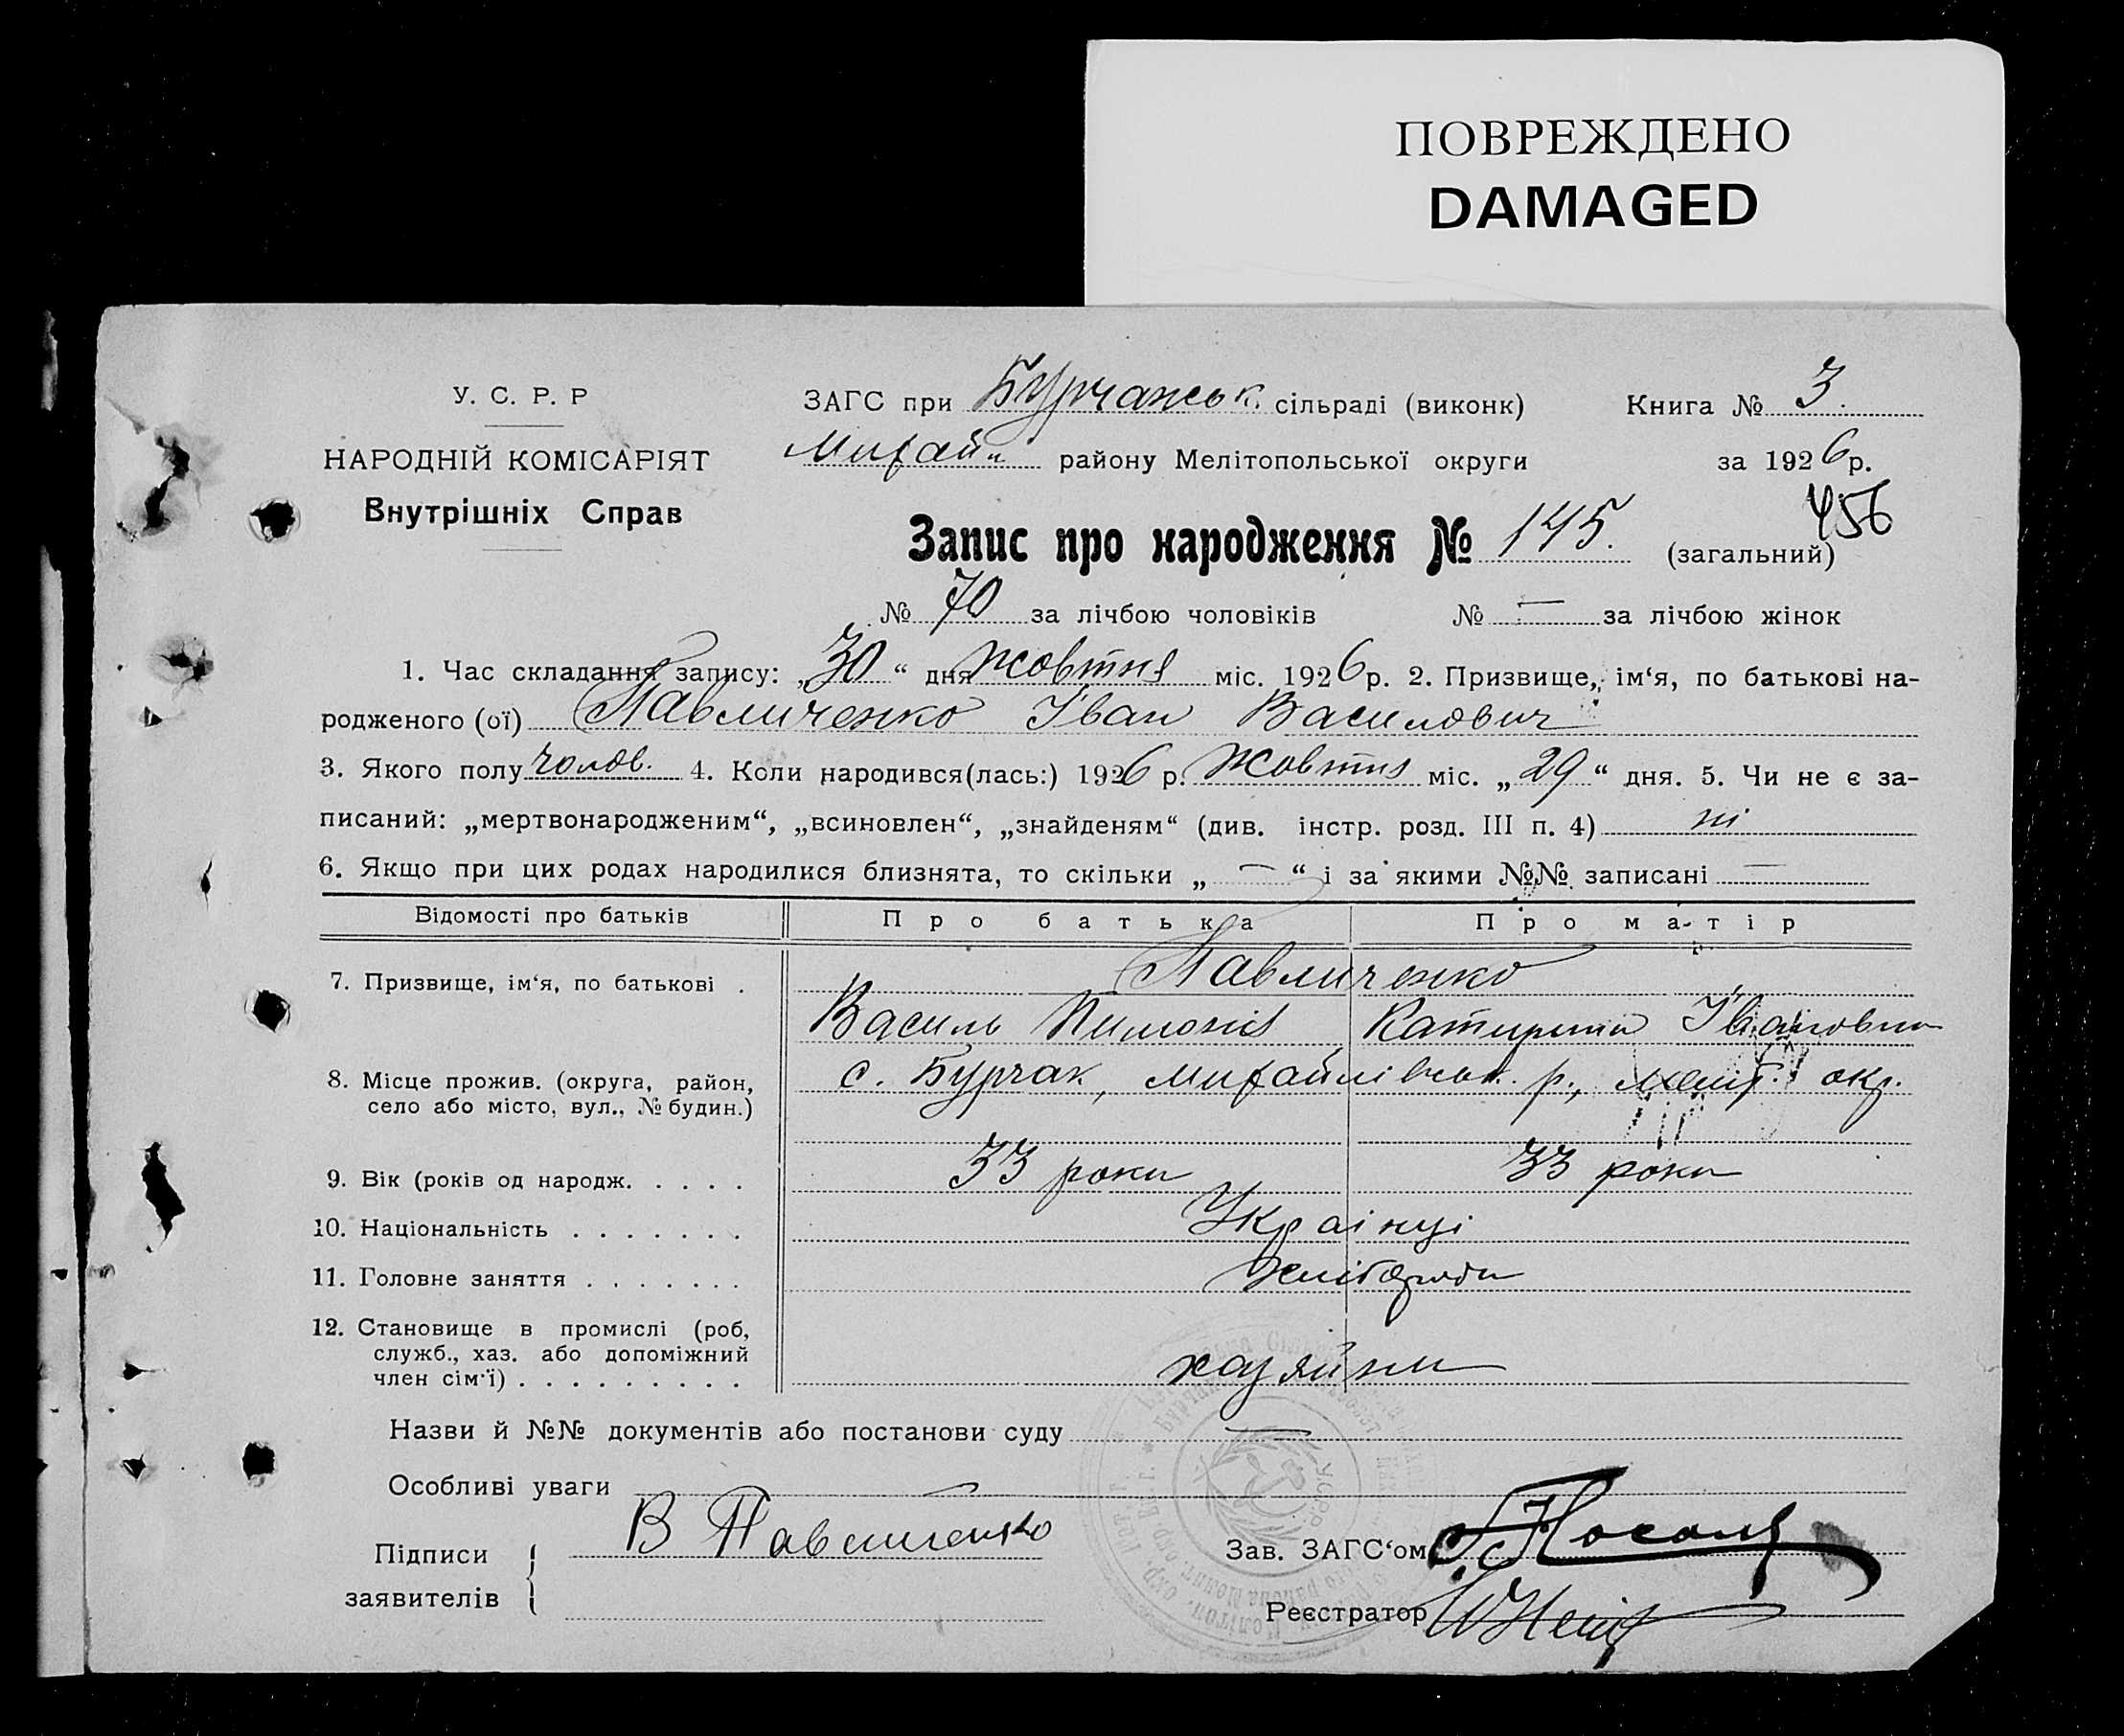 ПОВРЕЖДЕНО
DAMAGED
У. С. Р. Р
НАРОДНІЙ КОМІСАРІЯТ
Внутрішніх Справ
ЗАГС при Бурчанськ. сільраді (виконк) Книга № 3.
Михай" району Мелітопольської округи за 1926 р.
456
Запис про народження № 145. (загальний)
№ 70 за лічбою чоловіків № — за лічбою жінок
1. Час складання запису: „30“ дня жовтня міс. 1926 р. 2. Призвище, ім‘я, по батькові на-
родженого (ої) Павличенко Іван Василович
3. Якого полу чолов. 4. Коли народився(лась:) 1926 р. Жовтня міс. „29“ дня. 5. Чи не є за-
писаний: „мертвонародженим“, „всиновлен“, „знайденям“ (див. інстр. розд. III п. 4) ні
6. Якщо при цих родах народилися близнята, то скільки „—“ і за якими №№ записані —
Відомості про батьків Про батька Про матір
7. Призвище, ім‘я, по батькові . Павличенко
Василь Пимонів Катирина Івановна
8. Місце прожив. (округа, район, с. Бурчак, Михайлівськ. р., Меліт. окр.
село або місто, вул., № будин.)
9. Вік (років од народж. . . . . 33 роки 33 роки
10. Національність . . . . . . . Українці
11. Головне заняття . . . . . . . Хлібороби
12. Становище в промислі (роб,
служб., хаз. або допоміжний хазяйни
член сім‘ї) . . . . . . . . .
Назви й №№ документів або постанови суду —
Особливі уваги —
Підписи В Павличенко Зав. ЗАГС‘ом
заявителів Реєстратор